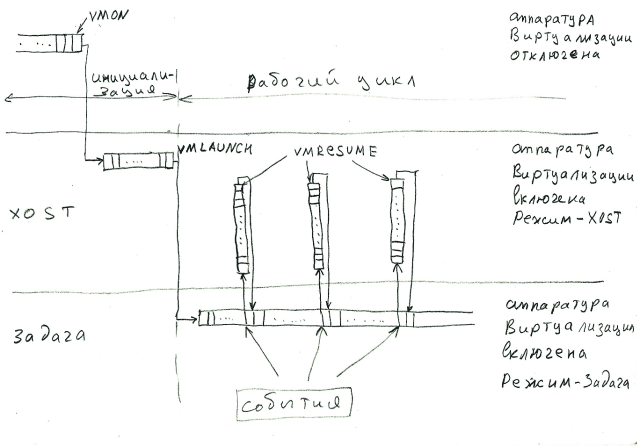 VMON
аппаратура
Виртуализации
отключена
инициали-
зация
Рабочий цикл
VMLAUNCH
VMRESUME
аппаратура
Виртуализации
включена
Режим-ХОST
ХОST
аппаратура
Виртуализации
включена
Режим-Задача
Задача
события